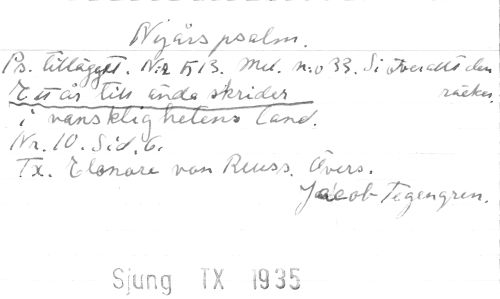 Nyårspsalm.
Ps. tillägget. N:r 513. Mel. n:o 33. Si överallt den
Ett år till ända skrider räcker
i vansklighetens land.
Nr. 10. Sid. 6.
Tx. Elonore von Reuss. Övers.
Jacob Tegengren.
Sjung TX 1935